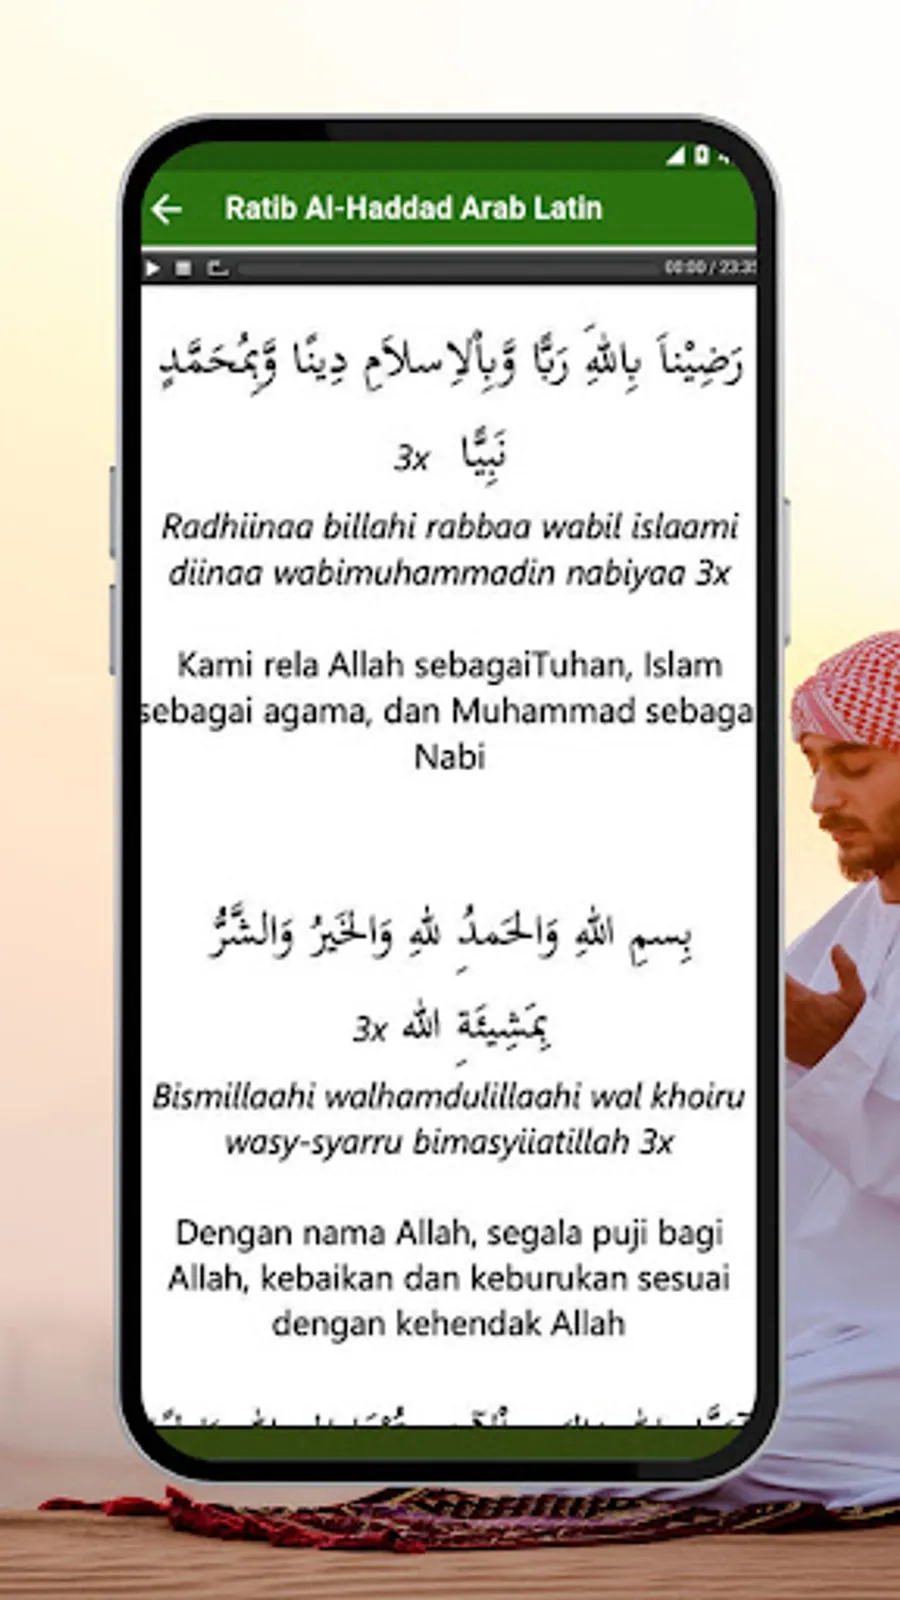 Ratib Al-Haddad Arab Latin
00:00 / 23:35
رَضِيْنَا بِاللهِ رَبًّا وَّبِاْلإِسلاَمِ دِينًا وَّبِمُحَمَّدٍ
نَبِيًّا 3x
Radhiinaa billahi rabbaa wabil islaami
diinaa wabimuhammadin nabiyaa 3x
Kami rela Allah sebagaiTuhan, Islam
sebagai agama, dan Muhammad sebaga
Nabi
بِسمِ اللهِ وَالحَمدُِ للهِ وَالخَيرُ وَالشَّرُّ
بِمَشِيئَةِِ الله 3x
Bismillaahi walhamdulillaahi wal khoiru
wasy-syarru bimasyiiatillah 3x
Dengan nama Allah, segala puji bagi
Allah, kebaikan dan keburukan sesuai
dengan kehendak Allah